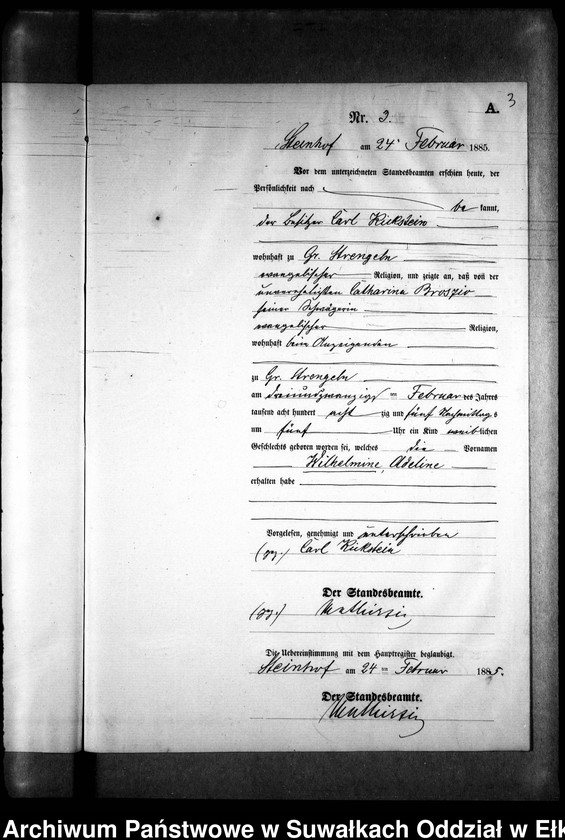 A. 3
Nr. 3.
Steinhof am 24. Februar 1885.
Vor dem unterzeichneten Standesbeamten erschien heute, der
Persönlichkeit nach
be kannt,
der Besitzer Carl Kickstein
wohnhaft zu Gr. Strengeln
evangelischer Religion, und zeigte an, daß von der
unverehelichten Catharina Broszio
seiner Schwägerin
evangelischer Religion,
wohnhaft beim Anzeigenden
zu Gr. Strengeln
am dreiundzwanzigs ten Februar des Jahres
tausend acht hundert acht zig und fünf Nachmittag s
um fünf Uhr ein Kind weib lichen
Geschlechts geboren worden sei, welches die Vornamen
Wilhelmine, Adeline
erhalten habe
Vorgelesen, genehmigt und unterschrieben
(gez.) Carl Kickstein
Der Standesbeamte.
(gez.)
Die Uebereinstimmung mit dem Hauptregister beglaubigt.
Steinhof am 24 ten Februar 1885.
Der Standesbeamte.
Archiwum Państwowe w Suwałkach Oddział w Ełk